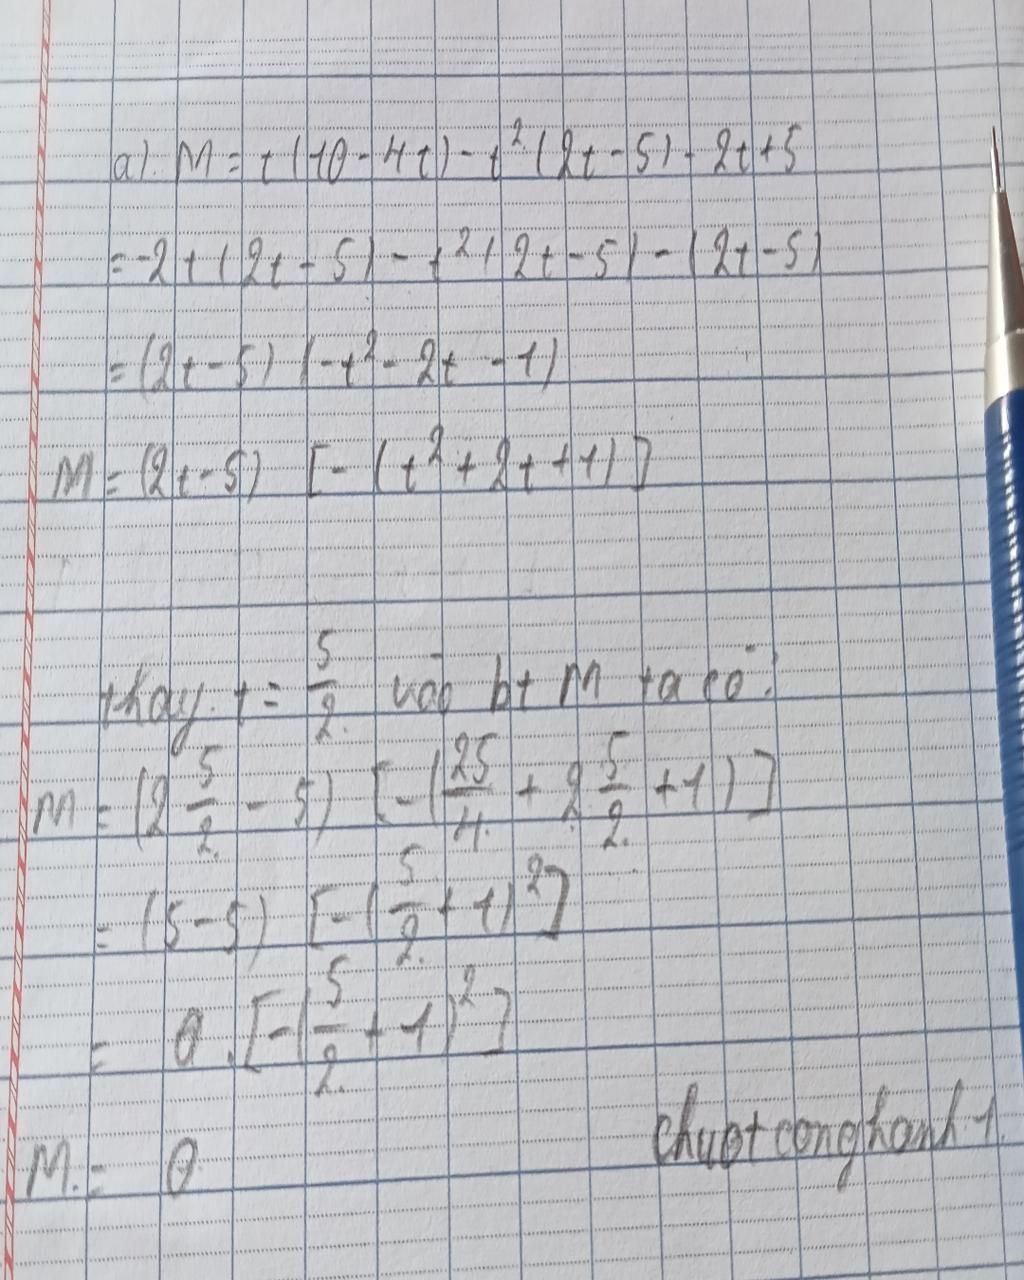 a). M = t(10 - 4t) - t²(2t - 5) - 2t + 5
= -2t(2t - 5) - t²(2t - 5) - (2t - 5)
= (2t - 5) (-t² - 2t - 1)
M = (2t - 5) [-(t² + 2t + 1)]
thay t = 5/2 vào bt M ta có:
M = (2 5/2 - 5) [-(25/4 + 2 5/2 + 1)]
= (5 - 5) [-(5/2 + 1)²]
= 0.[-(5/2 + 1)²]
M = 0
chuotconghanh1